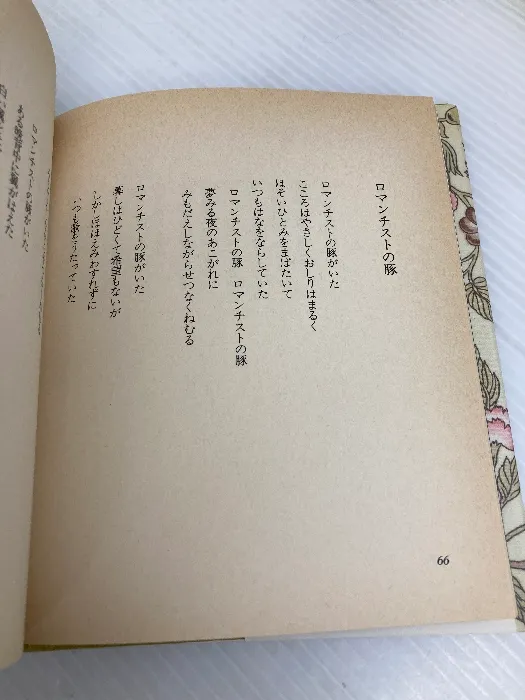 ロマンチストの豚
ロマンチストの豚がいた
こころはやさしくおしりはまるく
ほそいひとみをまばたいて
いつもはなをならしていた
ロマンチストの豚 ロマンチストの豚
夢みる夜のあこがれに
みもだえしながらせつなくねむる
ロマンチストの豚がいた
暮しはひどくて希望もないが
しかしほほえみわすれずに
いつも歌をうたっていた
66
ロマンチストの豚がいた
ある晩背中に翼がはえた
白い